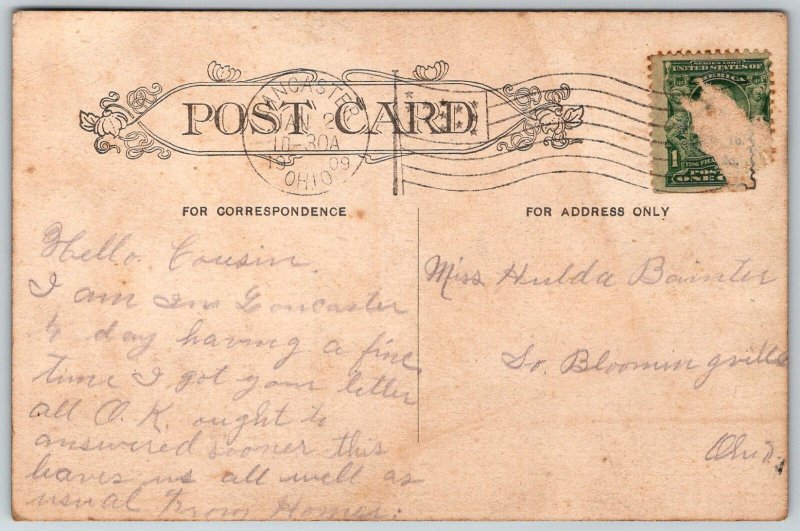 POST CARD
LANCASTER
JAN 2
10-30A
1909
OHIO
SERIES 1902
UNITED STATES OF
AMERICA
1
POST
ONE C
FOR CORRESPONDENCE
FOR ADDRESS ONLY
Hello Cousin.
I am in Loncaster
to day having a fine
time I got your letter
all O.K. ought to
answered sooner this
leaves us all well as
usual From Homer.
Miss Hulda Bainter
So. Bloomingville
Ohio.